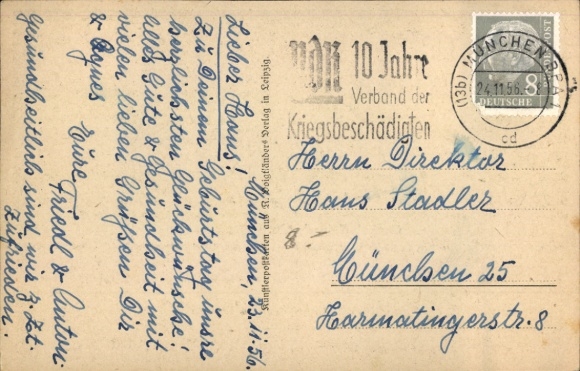 München, 23.11.56.
Lieber Hans!
Zu Deinem Geburtstag unsre
herzlichsten Glückwünsche!
Alles Gute & Gesundheit mit
vielen lieben Grüßen Dir
& Agnes
Eure Friedl & Anton.
Gesundheitlich sind wir z. Zt.
zufrieden.
Künstlerpostkarten aus R. Voigtländer's Verlag in Leipzig.
VdK 10 Jahre
Verband der
Kriegsbeschädigten
(13b) MÜNCHEN
24.11.56.
cd
POST
8
DEUTSCHE
Herrn Direktor
Hans Stadler
8.-
München 25
Harmatingerstr. 8